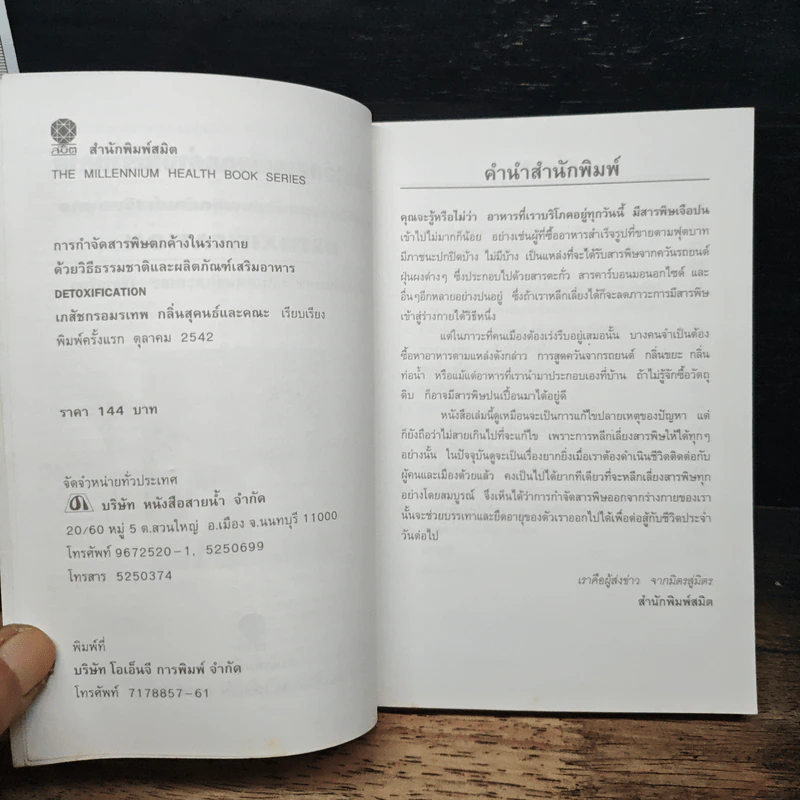 สมิต สำนักพิมพ์สมิต
THE MILLENNIUM HEALTH BOOK SERIES
การกำจัดสารพิษตกค้างในร่างกาย
ด้วยวิธีธรรมชาติและผลิตภัณฑ์เสริมอาหาร
DETOXIFICATION
เภสัชกรอมรเทพ กลิ่นสุคนธ์และคณะ เรียบเรียง
พิมพ์ครั้งแรก ตุลาคม 2542
ราคา 144 บาท
จัดจำหน่ายทั่วประเทศ
บริษัท หนังสือสายน้ำ จำกัด
20/60 หมู่ 5 ต.สวนใหญ่ อ.เมือง จ.นนทบุรี 11000
โทรศัพท์ 9672520-1, 5250699
โทรสาร 5250374
พิมพ์ที่
บริษัท โอเอ็นจี การพิมพ์ จำกัด
โทรศัพท์ 7178857-61
คำนำสำนักพิมพ์
คุณจะรู้หรือไม่ว่า อาหารที่เราบริโภคอยู่ทุกวันนี้ มีสารพิษเจือปน
เข้าไปไม่มากก็น้อย อย่างเช่นผู้ที่ซื้ออาหารสำเร็จรูปที่ขายตามฟุตบาท
มีภาชนะปกปิดบ้าง ไม่มีบ้าง เป็นแหล่งที่จะได้รับสารพิษจากควันรถยนต์
ฝุ่นผงต่างๆ ซึ่งประกอบไปด้วยสารตะกั่ว สารคาร์บอนมอนอกไซด์ และ
อื่นๆอีกหลายอย่างปนอยู่ ซึ่งถ้าเราหลีกเลี่ยงได้ก็จะลดภาวะการมีสารพิษ
เข้าสู่ร่างกายได้วิธีหนึ่ง
แต่ในภาวะที่คนเมืองต้องเร่งรีบอยู่เสมอนั้น บางคนจำเป็นต้อง
ซื้อหาอาหารตามแหล่งดังกล่าว การสูดควันจากรถยนต์ กลิ่นขยะ กลิ่น
ท่อน้ำ หรือแม้แต่อาหารที่เรานำมาประกอบเองที่บ้าน ถ้าไม่รู้จักซื้อวัตถุ
ดิบ ก็อาจมีสารพิษปนเปื้อนมาได้อยู่ดี
หนังสือเล่มนี้ดูเหมือนจะเป็นการแก้ไขปลายเหตุของปัญหา แต่
ก็ยังถือว่าไม่สายเกินไปที่จะแก้ไข เพราะการหลีกเลี่ยงสารพิษให้ได้ทุกๆ
อย่างนั้น ในปัจจุบันดูจะเป็นเรื่องยากยิ่งเมื่อเราต้องดำเนินชีวิตติดต่อกับ
ผู้คนและเมืองด้วยแล้ว คงเป็นไปได้ยากทีเดียวที่จะหลีกเลี่ยงสารพิษทุก
อย่างโดยสมบูรณ์ จึงเห็นได้ว่าการกำจัดสารพิษออกจากร่างกายของเรา
นั้นจะช่วยบรรเทาและยืดอายุของตัวเราออกไปได้เพื่อต่อสู้กับชีวิตประจำ
วันต่อไป
เราคือผู้ส่งข่าว จากมิตรสู่มิตร
สำนักพิมพ์สมิต